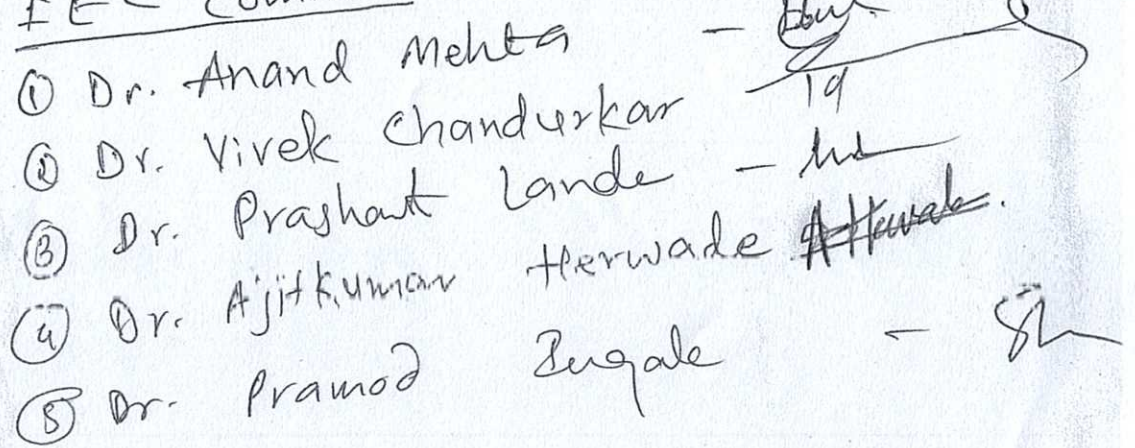 ① Dr. Anand Mehta -
② Dr. Vivek Chandurkar -
③ Dr. Prashant Lande -
④ Dr. Ajitkumar Herwade
⑤ Dr. Pramod -